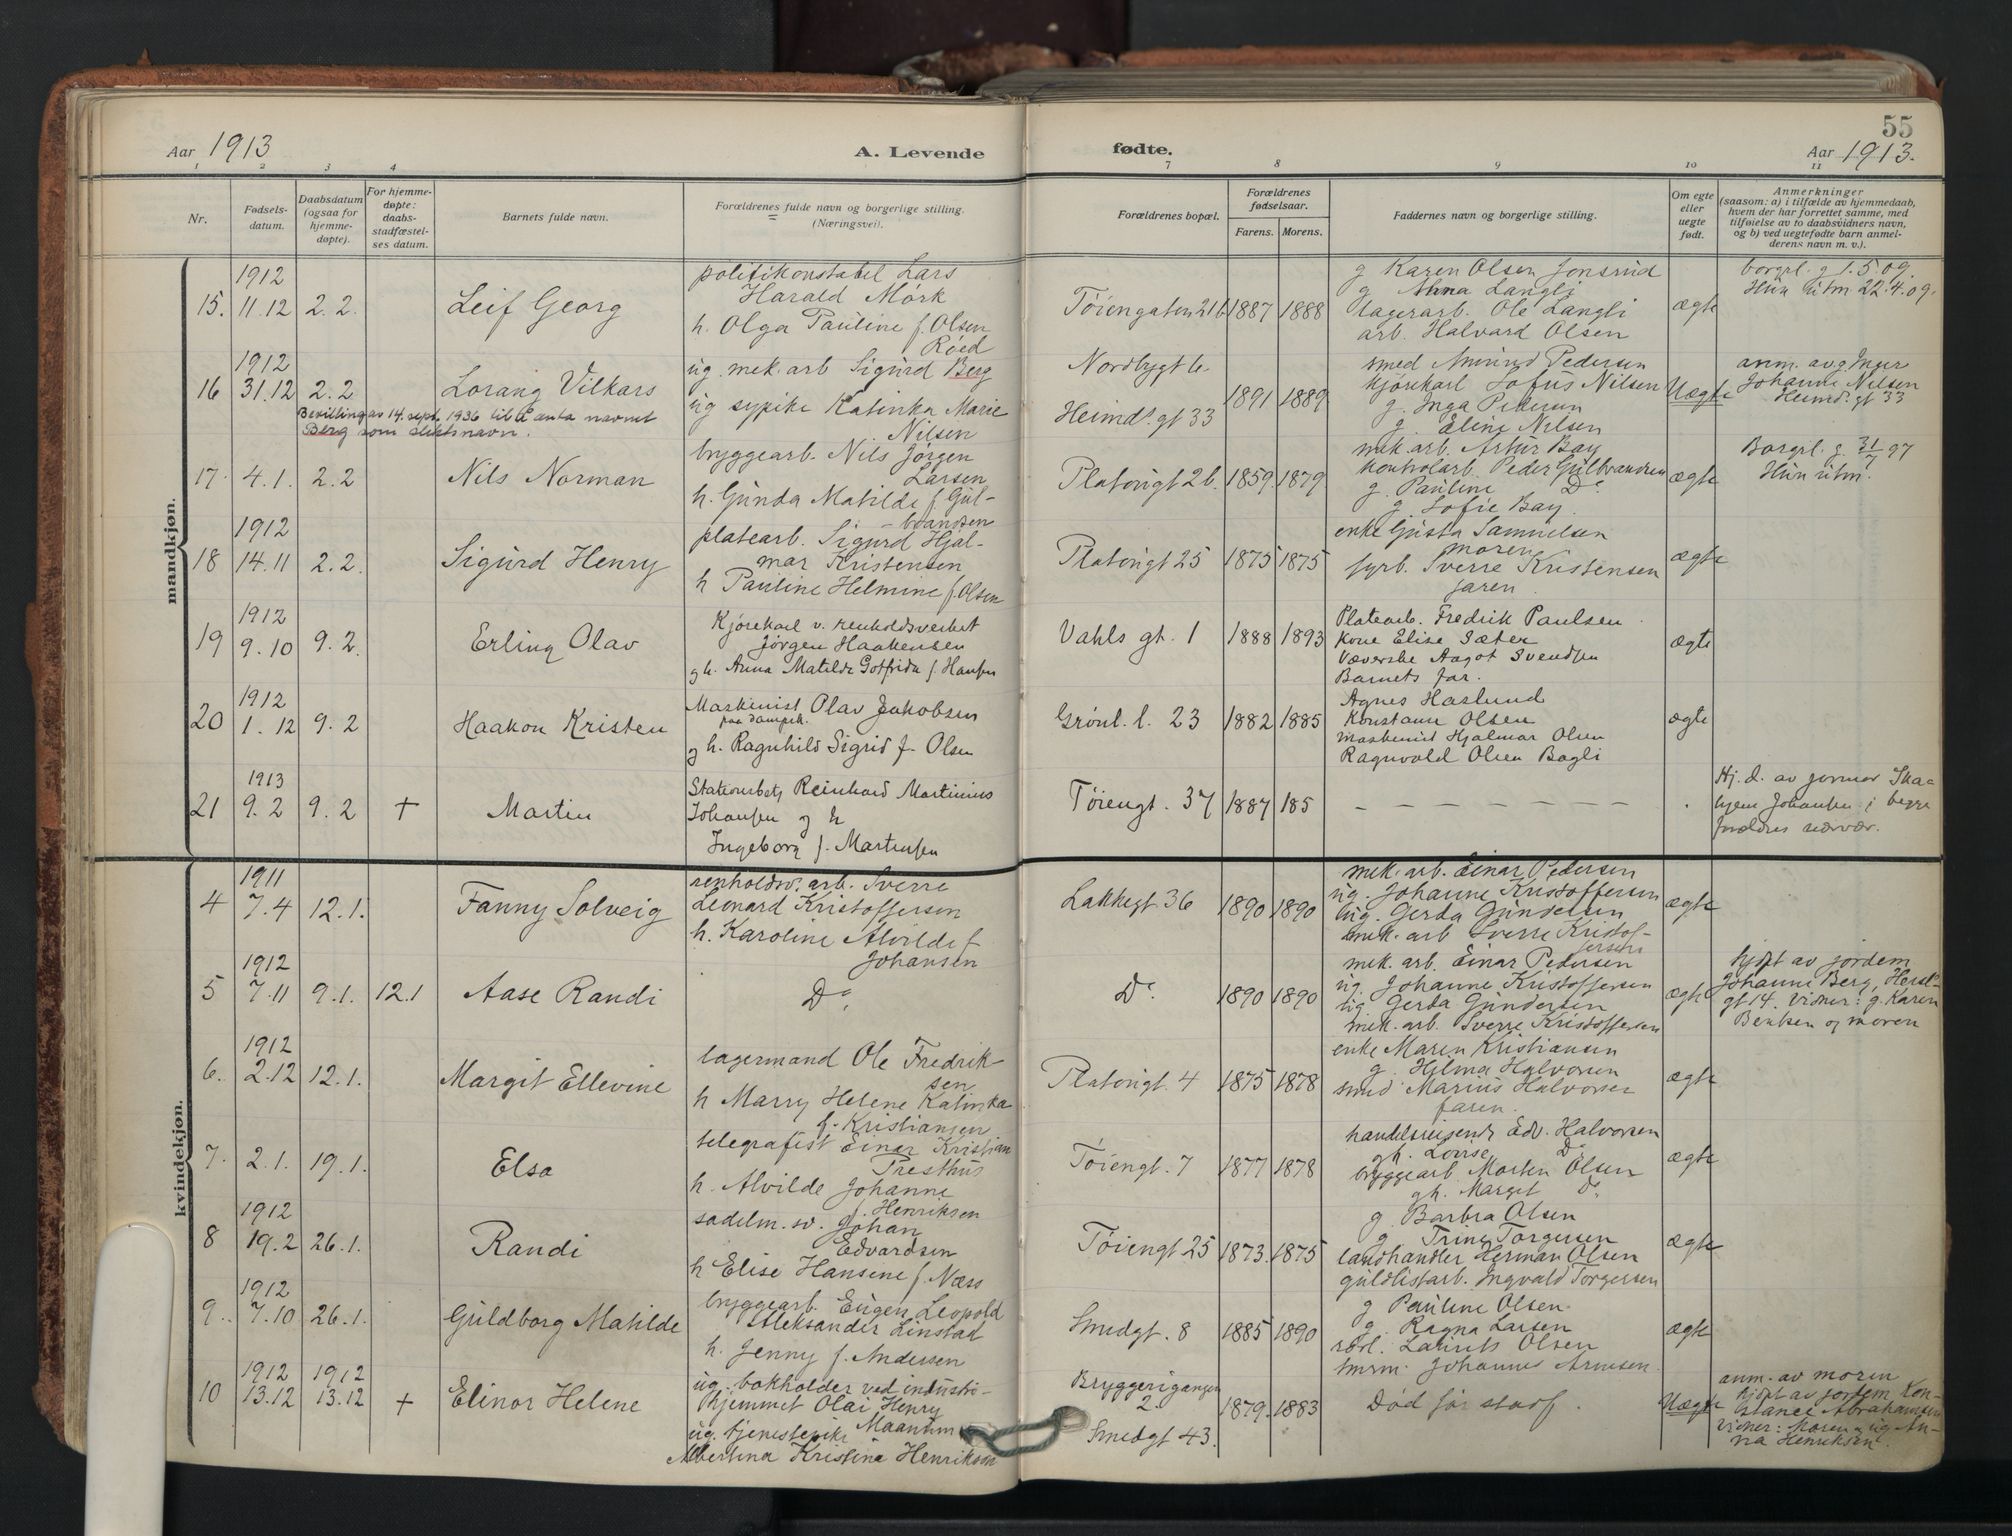 55
Aar 1913
A. Levende fødte.
Aar 1913.
1 2 3 4 7 8 9 10 11
Nr.
Fødsels-
datum.
Daabsdatum
(ogsaa for
hjemme-
døpte).
For hjemme-
døpte:
daabs-
stadfæstel-
ses datum.
Barnets fulde navn.
Forældrenes fulde navn og borgerlige stilling.
(Næringsvei).
Forældrenes bopæl.
Forældrenes
fødselsaar.
Farens. Morens.
Faddernes navn og borgerlige stilling.
Om egte
eller
uegte
født.
Anmerkninger
(saasom: a) i tilfælde av hjemmedaab,
hvem der har forrettet samme, med
tilføielse av to daabsvidners navn,
og b) ved uegtefødte barn anmel-
derens navn m. v.).
mandkjøn.
15. 1912
11.12 2.2. Leif Georg
politikonstabel Lars
Harald Mørk
h. Olga Pauline f. Olsen
Røed
Tøiengaten 21b 1887 1888
g Karen Olsen Jonsrud
g Anna Langli
lagerarb. Ole Langli
arb. Halvard Olsen
ægte
borgrl. g 1.5.09.
Hun utm 22.4.09.
16 1912
31.12 2.2 Lorang Vilkars
Bevilling av 14. sept. 1936 til å anta navnet
Berg som slektsnavn.
ug. mek. arb Sigurd Berg
ug sypike Katinka Marie
Nilsen
Nordbygt 6.
Heimd. gt 33
1891 1889
smed Amund Pedersen
kjørekarl Sofus Nilsen
g. Inga Pedersen
g. Eline Nilsen
Uægte
anm. av g. Inger
Johanne Nilsen
Heimd. gt 33
17. 4.1. 2.2 Nils Norman
bryggearb. Nils Jørgen
Larsen
h. Gunda Matilde f. Gul-
brandsen
Platousgt 2b. 1859. 1879
mek. arb. Artur Bay
kontrolarb. Peder Gulbrandsen
g. Pauline Do
g. Sofie Bay.
ægte
Borgrl. g. 31/7 97
Hun utm.
18 1912
14.11 2.2. Sigurd Henry
platearb. Sigurd Hjal-
mar Kristensen
h Pauline Helmine f. Olsen
Platousgt 25 1875 1875
enke Gusta Samuelsen
moren
fyrb. Sverre Kristensen
faren
ægte
19 1912
9.10 9.2. Erling Olav
Kjørekarl v. renholdsverket
Jørgen Haakensen
g h. Anna Matilde Gotfrida f. Hansen
Vahls gt. 1 1888 1893
Platearb. Fredrik Paulsen.
Kone Elise Sæter
Væverske Aagot Svendsen
Barnets far.
ægte
20 1912
1.12 9.2 Haakon Kristen
Maskinist Olav Jakobsen
paa dampsk.
g h. Ragnhild Sigrid f. Olsen
Grønl. l. 23 1882 1885
Agnes Haslund
Konstanse Olsen
maskinist Hjalmar Olsen
Ragnvald Olsen Bagli
ægte
21 1913
9.2 9.2 + Martin
Stationsbetj Reinhard Martinius
Johansen og h
Ingeborg f. Martinsen
Tøiengt. 37 1887 185
– – – – – – – –
Hj. d. av jormor
Johansen i begge
forældres nærvær.
kvindekjøn.
4 1911
7.4 12.1. Fanny Solveig
renholdsv. arb. Sverre
Leonard Kristoffersen
h. Karoline Alvilde f
Johansen
Lakkegt 36 1890 1890
mek. arb. Einar Pedersen
ug. Johanne Kristoffersen
ug. Gerda Gundersen
mek. arb Sverre Kristof-
fersen
ægte
5 1912
7.11 9.1. 12.1 Aase Randi
Do
Do 1890 1890
mek. arb. Einar Pedersen
ug. Johanne Kristoffersen
ug. Gerda Gundersen
mek. arb. Sverre Kristoffersen
ægte
hjdpt av jordem
Johanne Berg,
gt 14. Vidner: g. Karen
Bentsen og moren
6. 1912
2.12 12.1. Margit Ellevine
lagermand Ole Fredrik
sen
h Marry Helene Katinka
f. Kristiansen
Platousgt. 4 1875 1878
enke Maren Kristiansen
g. Hilma Halvorsen
smed Marius Halvorsen
faren.
ægte
7. 2.1. 19.1. Elsa
telegrafist Einar Kristian
Presthus
h. Alvilde Johanne
f. Henriksen
Tøiengt. 7 1877 1878
handelsreisende Edv. Halvorsen
gh. Lovise Do
bryggearb Morten Olsen
gh. Marget Do
ægte
8 1912
19.2 26.1. Randi
sadelm. sv. Johan
Edvardsen
h Elise Hansene f. Næss
Tøiengt. 25 1873. 1875
g. Barbra Olsen
g Trine Torgersen
landhandler Herman Olsen
guldlistarb. Ingvald Torgersen
ægte
9. 1912
7.10 26.1. Guldborg Matilde
bryggearb. Eugen Leopold
Aleksander Linstad
h. Jenny f. Andersen
Smedgt. 8 1885 1890
g Pauline Olsen.
g. Ragna Larsen
Laurits Olsen
Johannes Arnesen.
ægte
10 1912 1912
13.12 13.12 + Elinor Helene
ug. bokholder ved industri-
hjemmet Olai Henry
Maanum
ug. tjenestepike
Albertina Kristina Henriksen
Bryggerigangen
2.
Smedgt 43.
1879. 1883
Død før
Uægte
anm. av moren
hjdpt av jordem Kon-
stance Abrahamsen
vidner: Moren og ug An-
na Henriksen.